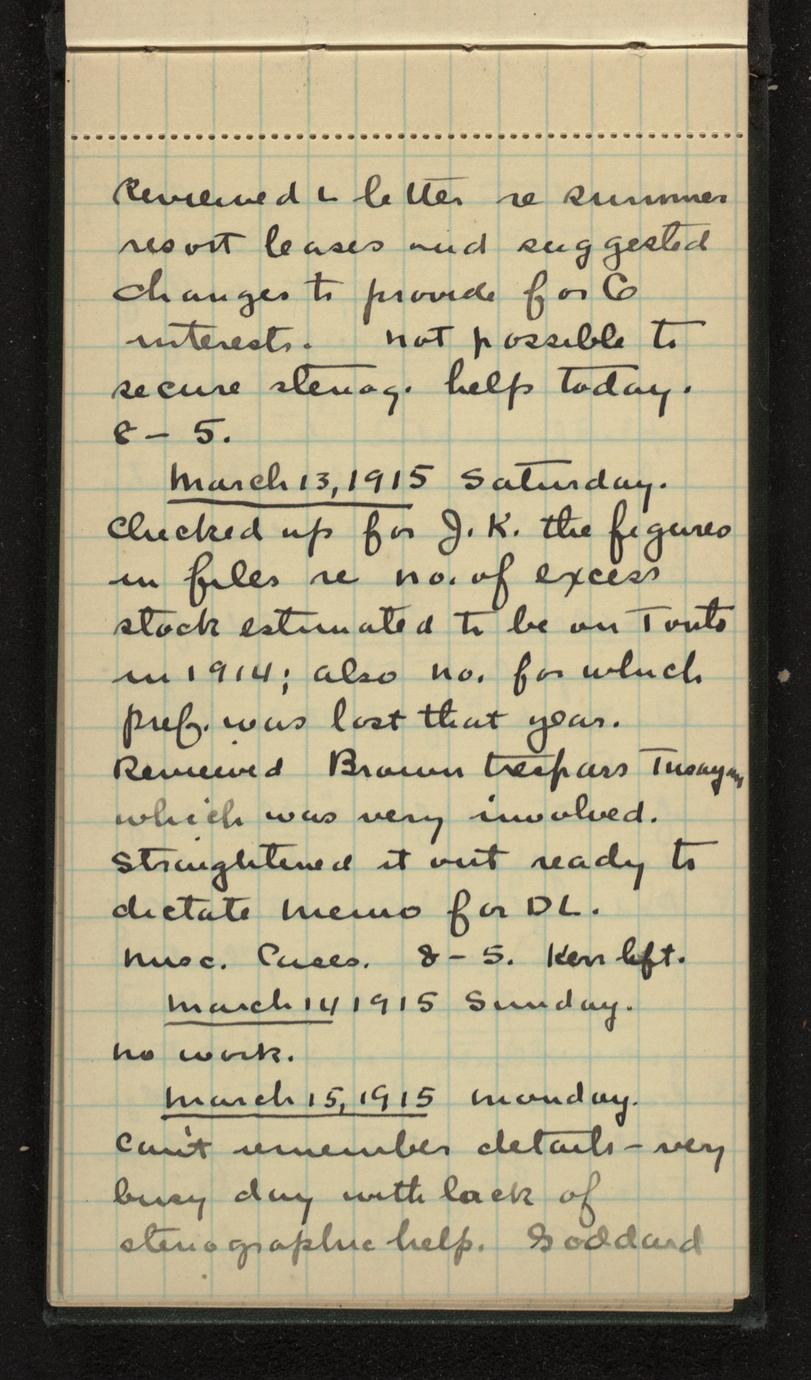 Reviewed L letter re summer
resort leases and suggested
changes to provide for G
interests. not possible to
secure stenog. help today.
8 – 5.
March 13, 1915 Saturday.
Checked up for J. K. the figures
in files re no. of excess
stock estimated to be on Tonto
in 1914; also no. for which
pref. was lost that year.
Reviewed Brown trespass Tusayan
which was very involved.
Straightened it out ready to
dictate memo for DL.
Misc. Cases. 8 – 5. Kerr left.
March 14 1915 Sunday.
no work.
March 15, 1915 Monday.
Can't remember details – very
busy day with lack of
stenographic help. Goddard